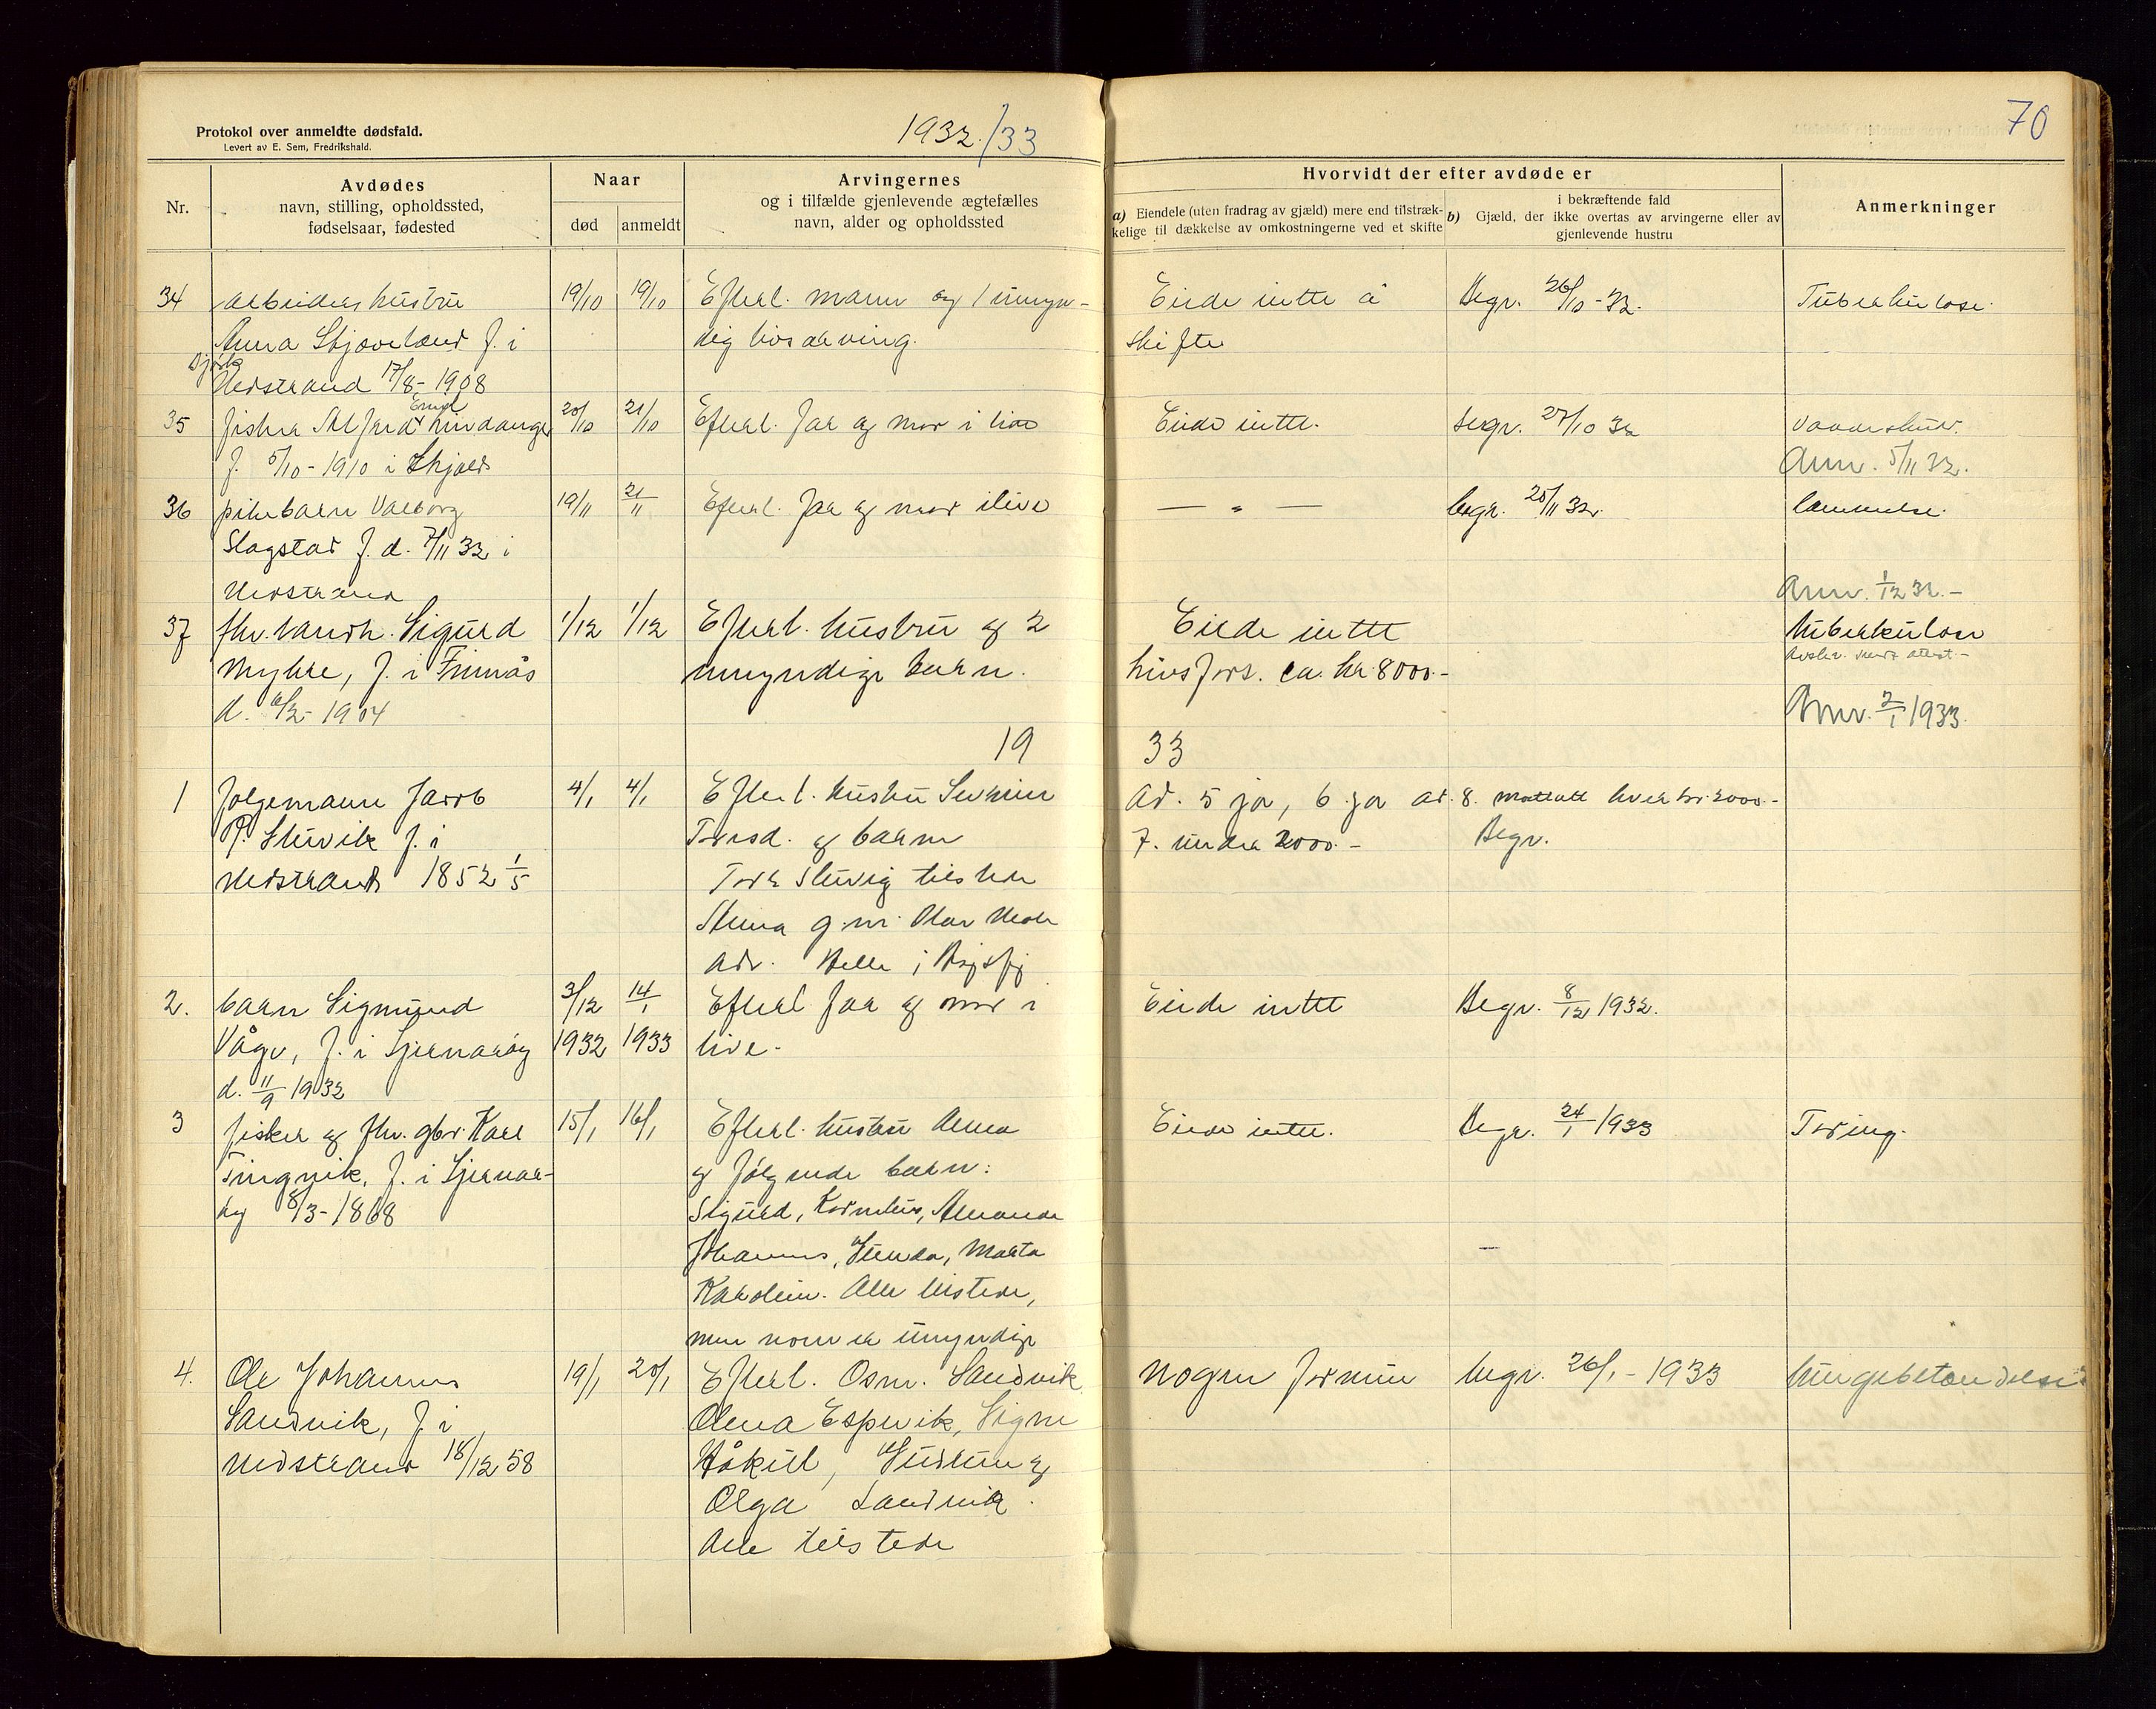 Protokol over anmeldte dødsfald.
Levert av E. Sem, Fredrikshald.
1932./33
70
Nr.
Avdødes
navn, stilling, opholdssted,
fødselsaar, fødested
Naar
død
anmeldt
Arvingernes
og i tilfælde gjenlevende ægtefælles
navn, alder og opholdssted
Hvorvidt der efter avdøde er
a) Eiendele (uten fradrag av gjæld) mere end tilstræk-
kelige til dækkelse av omkostningerne ved et skifte
i bekræftende fald
b) Gjæld, der ikke overtas av arvingerne eller av
gjenlevende hustru
Anmerkninger
34 arbeiders hustru 19/10 19/10 Efterl. mann og 1 umyn- Eiede intet å Begr. 26/10-32. Tuberkulose.
Anna Skjoveland f. i dig livsarving. skifte
Nedstrand 17/8-1908
35 fisker Einar 20/10 21/10 Efterl. far og mor i live Eiede intet. Begr. 27/10 32
f. 5/10-1910 i Skjold Anm. 5/11 32.
36 pikebarn Valborg 19/11 21/11 Efterl. far og mor ilive — " — begr. 25/11 32. lammelse.
Slogstad f. d. 7/11 32 i
Nedstrand Anm. 1/12 32.-
37 fhv. landh. Sigurd 1/12 1/12 Efterl. hustru og 2 Eiede intet tuberkulose
Myhre, f. i Finnås umyndige barn. livsfors. ca. kr 8000.-
d. 6/2-1904 Anm. 2/1 1933.
19 33
1 folgemann Jacob 4/1 4/1 Efterl. hustru Ad. 5 ja, 6 ja ad. 8. hver kr. 2000.-
P. Stuvik f. i Torsd. og barn 7. under 2000.- Begr.
Nedstrand 1852 1/5 Tore Stuvig tilstede
Stina g.m. Olav
Adr. Helle i
2. barn Sigmund 3/12 14/1 Efterl far og mor i Eiede intet Begr. 8/12 1932.
Våge, f. i Sjernarøy 1932 1933 live.
d. 11/9 1932
3 fisker og fhv. gbr. Karl 15/1 16/1 Efterl. hustru Anna Eiede intet. Begr. 24/1 1933 Tæring.
Tingvik, f. i Sjernar- og følgende barn:
øy 8/3-1868 Sigurd, Kornelius, Amanda
Johannes, Gunda, Marta
Karoline. Alle tilstede,
men noen er umyndige
4. Ole Johannes 19/1 20/1 Efterl. Osm. Sandvik nogen formue begr. 26/1-1933 lungebetændelse
Sandvik, f. i Olena Espevik, Signe
Nedstrand 18/12 58 Håkull, Gudrun og
Olga Sandvik.
Alle tilstede